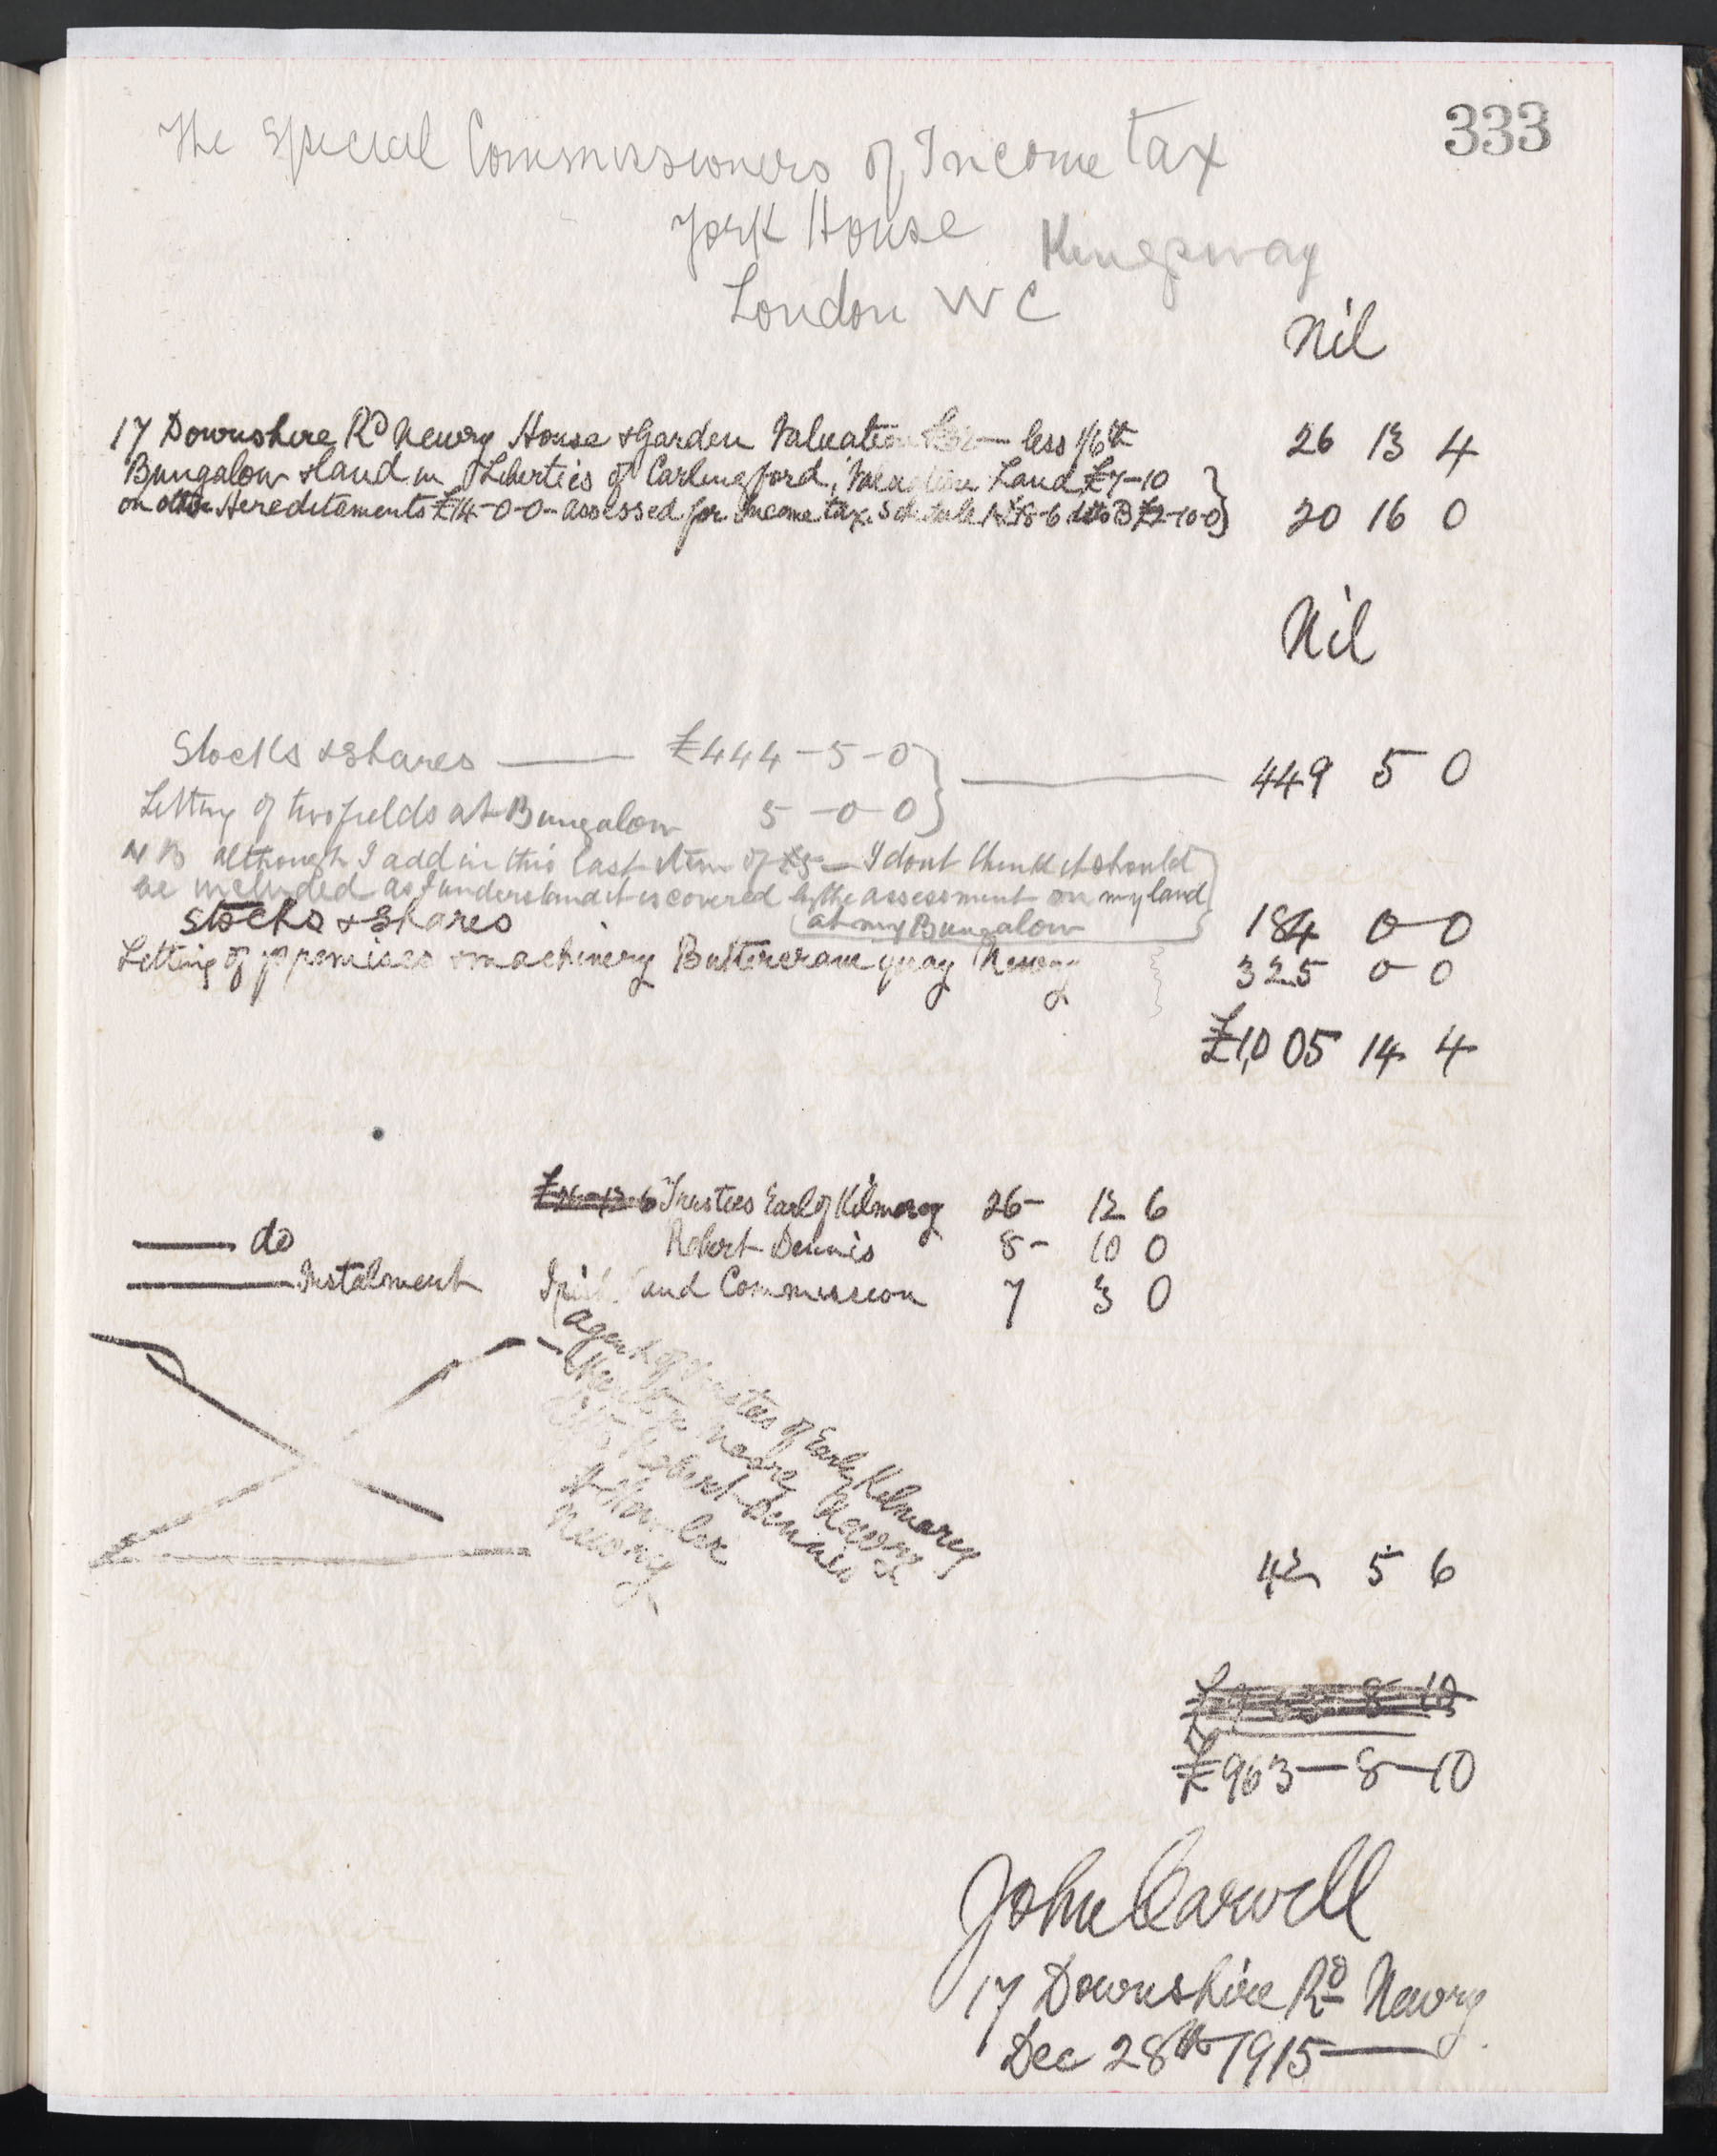 333
The Special Commissioners of Income tax
York House Kingsway
London WC
Nil
17 Downshire Rd Newry House & Garden Valuation £32 — less 1/6th 26 13 4
Bungalow & land in Liberties of Carlingford, Valuation Land £7-10
on other Hereditaments £14-0-0- assessed for Income tax. Schedule A £18-6 ditto B £2-10-0 20 16 0
Nil
Stocks & shares —— £444-5-0 —— 449 5 0
Letting of two fields at Bungalow 5-0-0
NB although I add in this last item of £5 — I dont think it should
be included as I understand it is covered by the assessment on my land
at my Bungalow
Stocks & Shares 184 0-0
Letting of premises & machinery Buttercrane quay Newry 325 0-0
£1,005 14 4
£26-12-6 Trustees Earl of Kilmorey 26- 12 6
—— do Robert Dennis 8- 10 0
—— Instalment Irish Land Commission 7 3 0
agent of Trustees of Earl of Kilmorey
Newry
Robert Dennis
Newry
42 5 6
£963-8-10
£963—8—10
John Carvell
17 Downshire Rd Newry
Dec 28th 1915—